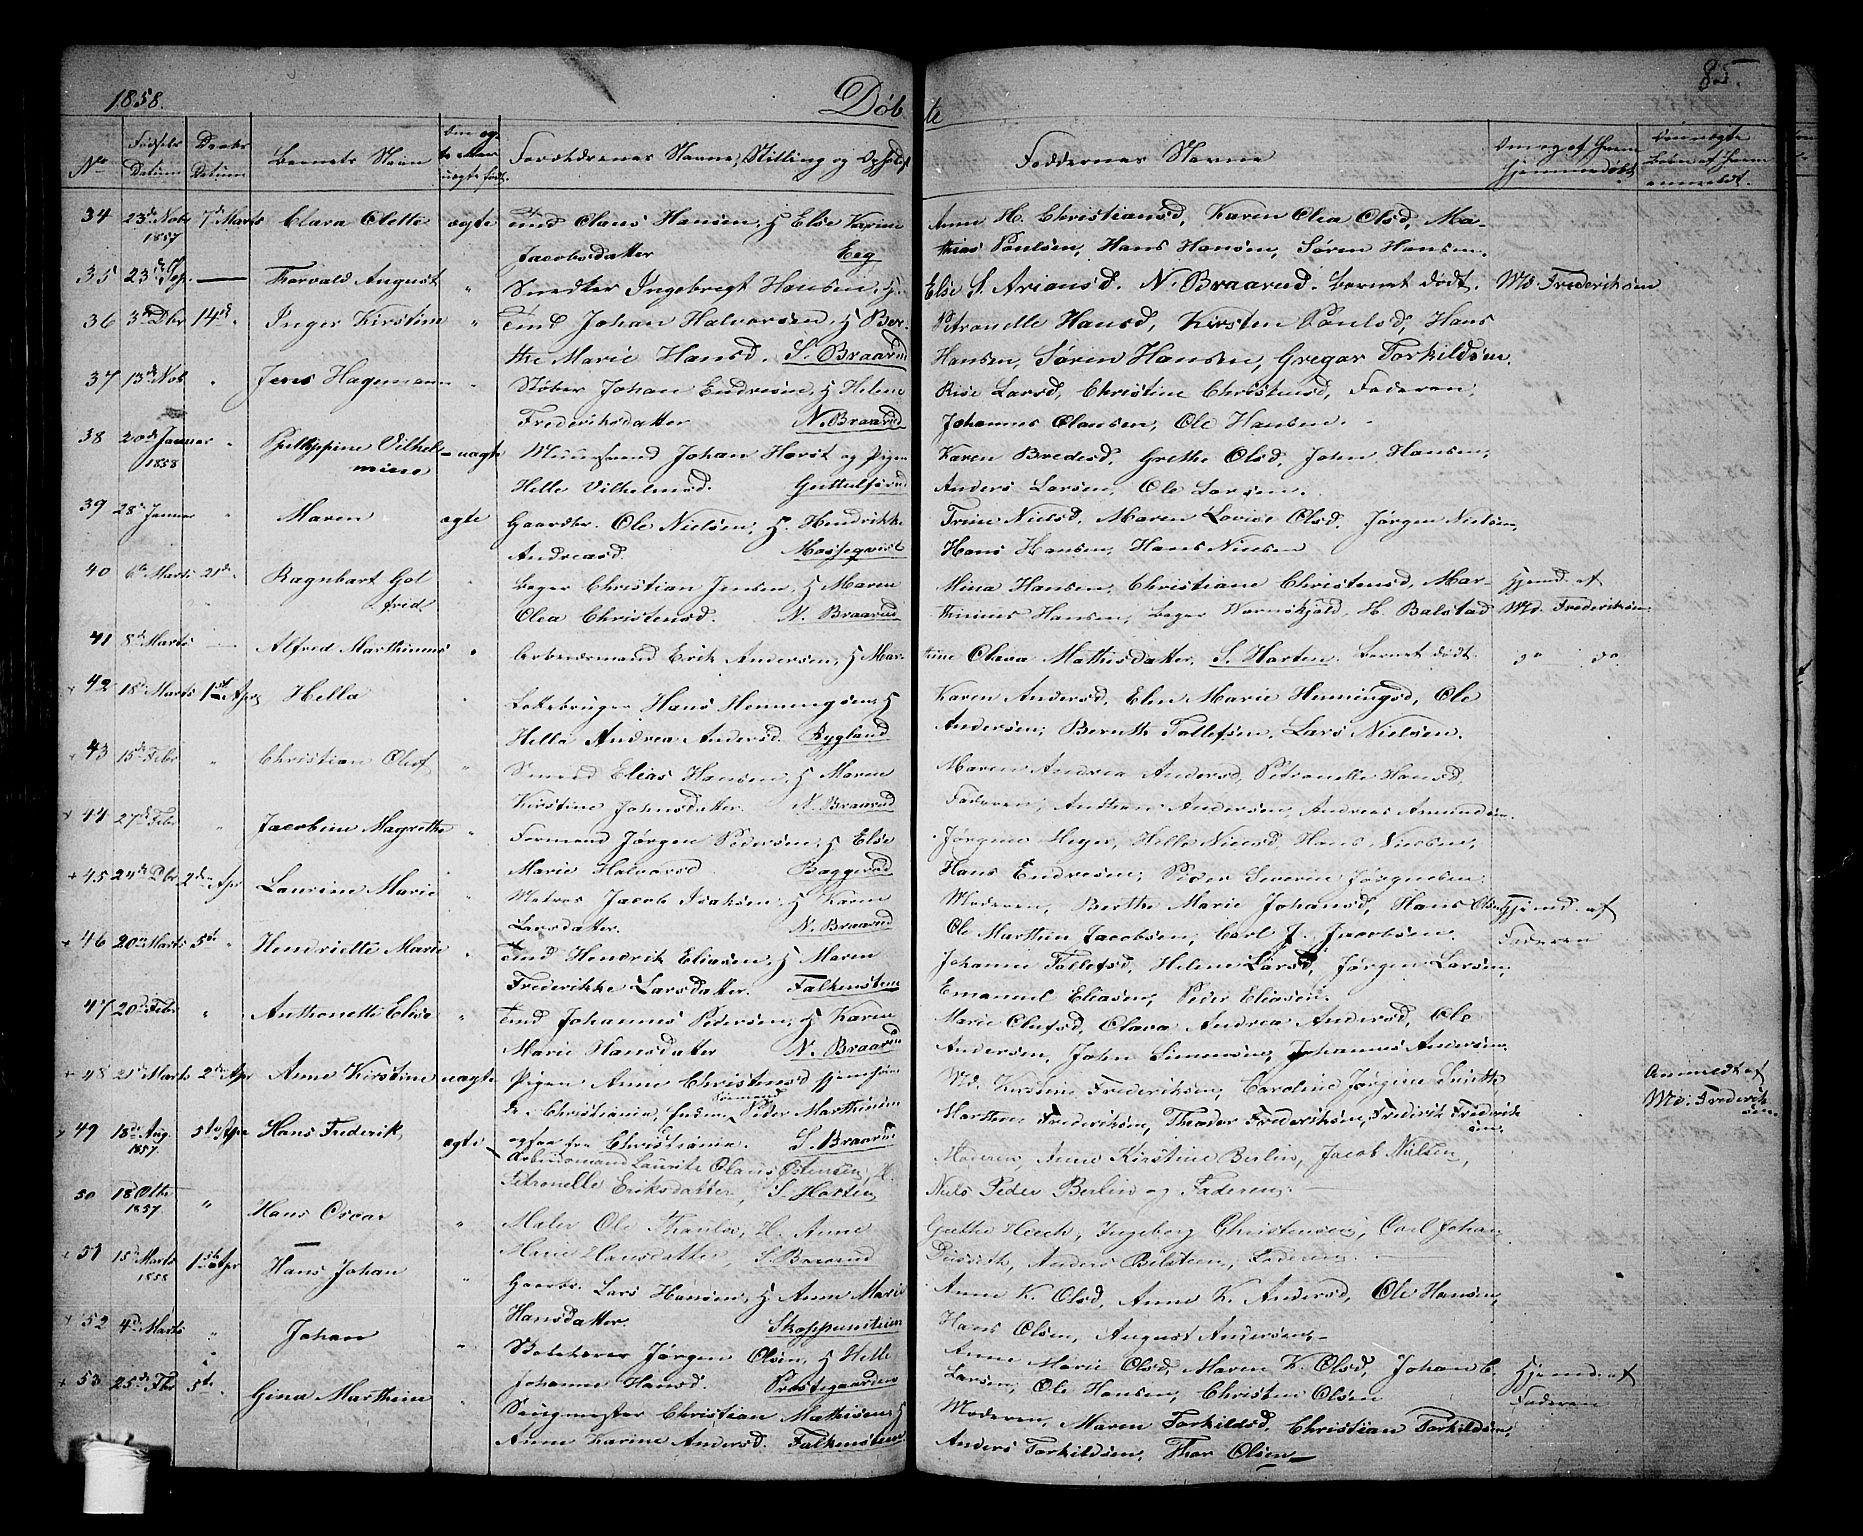 1858.
Døbte
85.
No
Fødsels Datum
Daabs Datum
Barnets Navn
Om ægte eller uægte født.
Forældrenes Navne, Stilling og Opholdst
Faddernes Navne
Om og af hvem hjemmedøbt
anmeldt.
34 23de Nobr 1857 7de Marts Clara Olette ægte Tmd Claus Hansen, H Else Karine Anne H. Christiansd, Karen Olea Olsd, Ma-
Jacobsdatter Eeg thias Poulsen, Hans Hansen, Søren Hansen.
35 23de — Torvald August " Snedker Ingebregt Hansen, H. Else S. Ariansd. N. Braarud. Barnet dødt. Md. Frederiksen
36 3de Dbr 14de " Inger Kirstine " Tmd Johan Halvorsen, H Ber- Petronelle Hansd, Kirsten Poulsd, Hans
the Marie Hansd. S. Braarud Hansen, Søren Hansen, Gregar Torkildsen.
37 13de Nob " Jens Hagemann " Støber Johan Endresen, H Helene Larsd, Christine Christensd, Faderen,
Frederiksdatter N. Braarud Johannes Olausen, Ole Hansen.
38 20de Januar 1858 " Philippine Vilhel- uægte Johan Horst og Pigen Karen Bredesd, Grethe Olsd, John Hansen,
mine Helle Vilhelmsd. Guttulfsrud Anders Larsen, Ole Larsen.
39 28de Januar " Maren ægte Gaardbr. Ole Nielsen, H. Hendrikke Trine Nielsd, Maren Lovise Olsd, Jørgen Nielsen,
Andreasd. Mosseqvist Hans Hansen, Hans Nielsen
40 6te Marts 21de " Ragnbart Got " Bager Christian Jensen, H Maren Mina Hansen, Christiane Christensd, Mar- Hjemd. af
frid Olea Christensd. N. Braarud thinius Hansen, Bager Wernskjold, H. Balstad Md. Frederiksen
41 8de Marts — Alfred Marthinius " Arbeidsmand Erik Andersen, H Mar- thine Olava Mathisdatter, S. Horten. Barnet dødt. do do
42 18de Marts 1ste Apr Hella " Lokebruger Hans Henningsen, H Karen Andersd, Elen Marie Henningsd, Ole
Hella Andrea Andersd. Rygland Andersen, Bernth Tollefsen, Lars Nielsen.
43 15de Febr " Christian Oluf " Smed Elias Hansen, H Maren Maren Andrea Andersd, Petronelle Hansd,
Kirstine Johnsdatter. N. Braarud Faderen, Andersen, Andreas Amundsen.
44 27de Febr " Jacobine Magrethe " Formand Jørgen Pedersen, H Else Jørgine Meyer, Helle Nielsd, Hans Nielsen,
Marie Halvorsd. Baggerød Hans Endresen, Peder Severin Jørgensen.
45 24de Dbr 2den Apr Laurine Marie " Matros Jacob Isaksen, H Karen Moderen, Berthe Marie Johansd, Hans Olsen Hjemd. af
Larsdatter. N. Braarud Ole Marthin Jacobsen, Carl J. Jacobsen. Faderen
46 20de Marts 5te " Hendriette Marie " Tmd Hendrik Eliasen, H Maren Johanne Tollefsd, Helene Larsd, Jørgen Larsen,
Frederikke Larsdatter. Falkensten Emanuel Eliasen, Peder Eliasen.
47 20de Febr " Anthonette Elise " Tmd Johannes Pedersen, H Karen Marie Olufsd, Olava Andrea Andersd, Ole
Marie Hansdatter N. Braarud Andersen, John Simensen, Johannes Andersen.
48 21de Marts 2den Apr Anne Kirstine uægte Pigen Anne Christensd hjemhøren Md. Kirstine Frederiksen, Caroline Jørgine Anmeldt af
de i Christiania, Peder Marthinsen Marthin Frederiksen, Theodor Frederiksen, Frederik Frederik Md. Frederik
sen. sen.
49 18de Aug. 1857 5te Apr Hans Frederik ægte ogsaa fra Christiania. S. Braarud
Arbeidsmand Lauritz Olaus Ostensen, H. Moderen, Anne Kirstine Berlin, Jacob Nielsen,
Petronelle Eriksdatter, S. Horten Niels Peder Berlin og Faderen.
50 18de Oktbr 1857 " Hans Oscar " Maler Ole H. Anne Grethe Ingeborg Christensen, Carl Johan
Marie Hansdatter, S. Braarud Anders Bilsteen, Faderen.
51 15de Marts 1858 15de Apr Hans Johan " Gaardb. Lars Hansen, H Anne Marie Anne K. Olsd, Anne K. Andersd, Ole Hansen,
Hansdatter. Skoppumteien Hans Olsen, August Andersen.
52 4de Marts " Johan " Jørgen Olsen, H Helle Anne Marie Olsd, Maren K. Olsd, Johan C. Hjemd. af
Johanne Hansd. Præstegaarden Larsen, Ole Hansen, Christen Olsen Faderen
53 25de Fbr 5te " Gina Marthine " Saugmester Christian Mathisen, H Moderen, Maren Torkildsd, Christian Torkildsen,
Anne Karine Andersd. Falkensten Anders Torkildsen, Thor Olsen